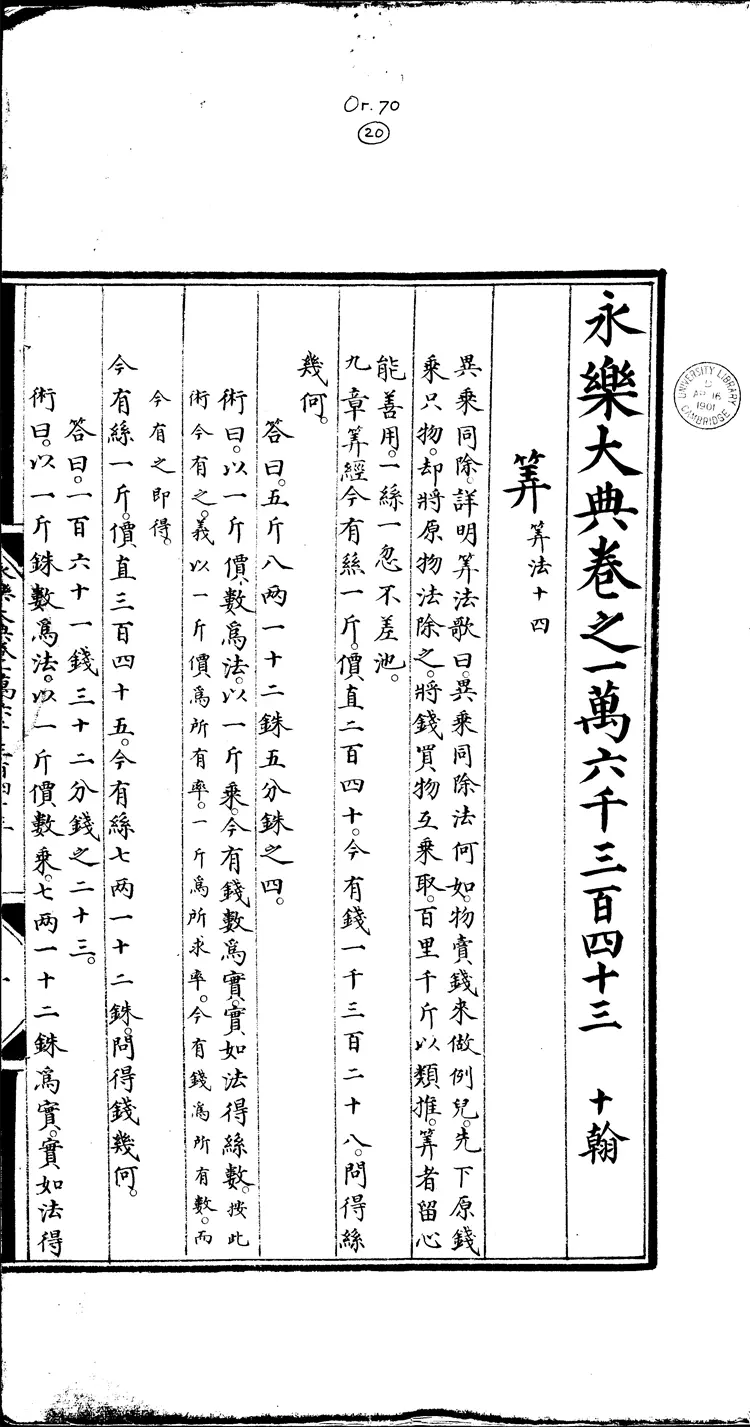 Or. 70
20
UNIVERSITY LIBRARY
AP 16
1901
CAMBRIDGE
永樂大典卷之一萬六千三百四十三 十翰
筭 筭法十四
異乘同除。詳明筭法歌曰。異乘同除法何如。物賣錢來做例兒。先下原錢
乘只物。却將原物法除之。將錢買物互乘取。百里千斤以類推。筭者留心
能善用。一絲一忽不差池。
九章筭經今有絲一斤。價直二百四十。今有錢一千三百二十八。問得絲
幾何。
答曰。五斤八兩一十二銖五分銖之四。
術曰。以一斤價數爲法。以一斤乘。今有錢數爲實。實如法得絲數。按此
術今有之。義以一斤價爲所有率。一斤爲所求率。今有錢爲所有數。而
今有之即得。
今有絲一斤。價直三百四十五。今有絲七兩一十二銖。問得錢幾何。
答曰。一百六十一錢三十二分錢之二十三。
術曰。以一斤銖數爲法。以一斤價數乘。七兩一十二銖爲實。實如法得
永樂大典卷一萬六千三百四十三
一